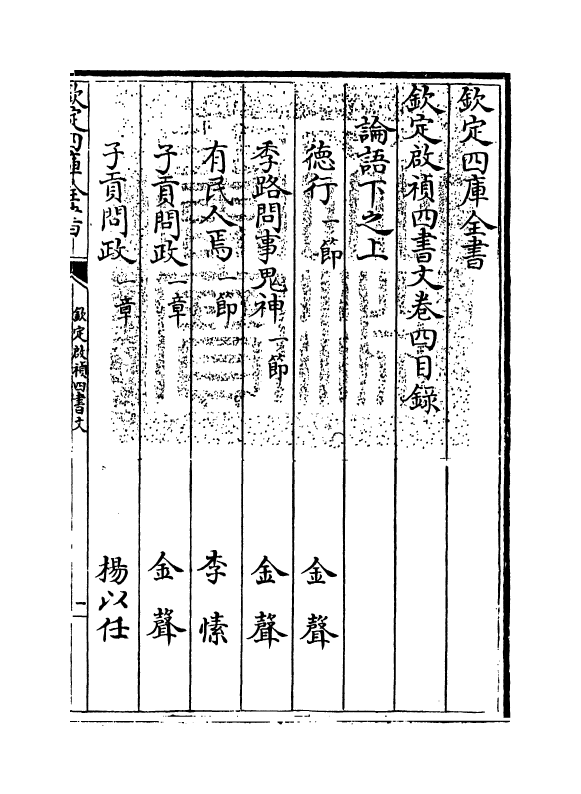 欽定四庫全書
欽定啟禎四書文卷四目録
論語下之上
德行一節　金聲
季路問事鬼神一節　金聲
有民人焉一節　李愫
子貢問政一章　金聲
子貢問政一章　楊以任
欽定四庫全書
欽定啟禎四書文
一